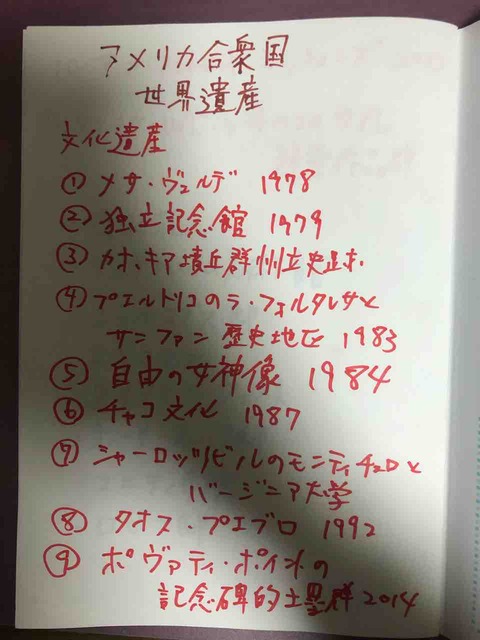 アメリカ合衆国
世界遺産
文化遺産
① メサ・ヴェルデ 1978
② 独立記念館 1979
③ カホキア墳丘群州立史跡
④ プエルトリコのラ・フォルタレサと
サンファン歴史地区 1983
⑤ 自由の女神像 1984
⑥ チャコ文化 1987
⑦ シャーロッツビルのモンティチェロと
バージニア大学
⑧ タオス・プエブロ 1992
⑨ ポヴァティ・ポイントの
記念碑的土塁群 2014